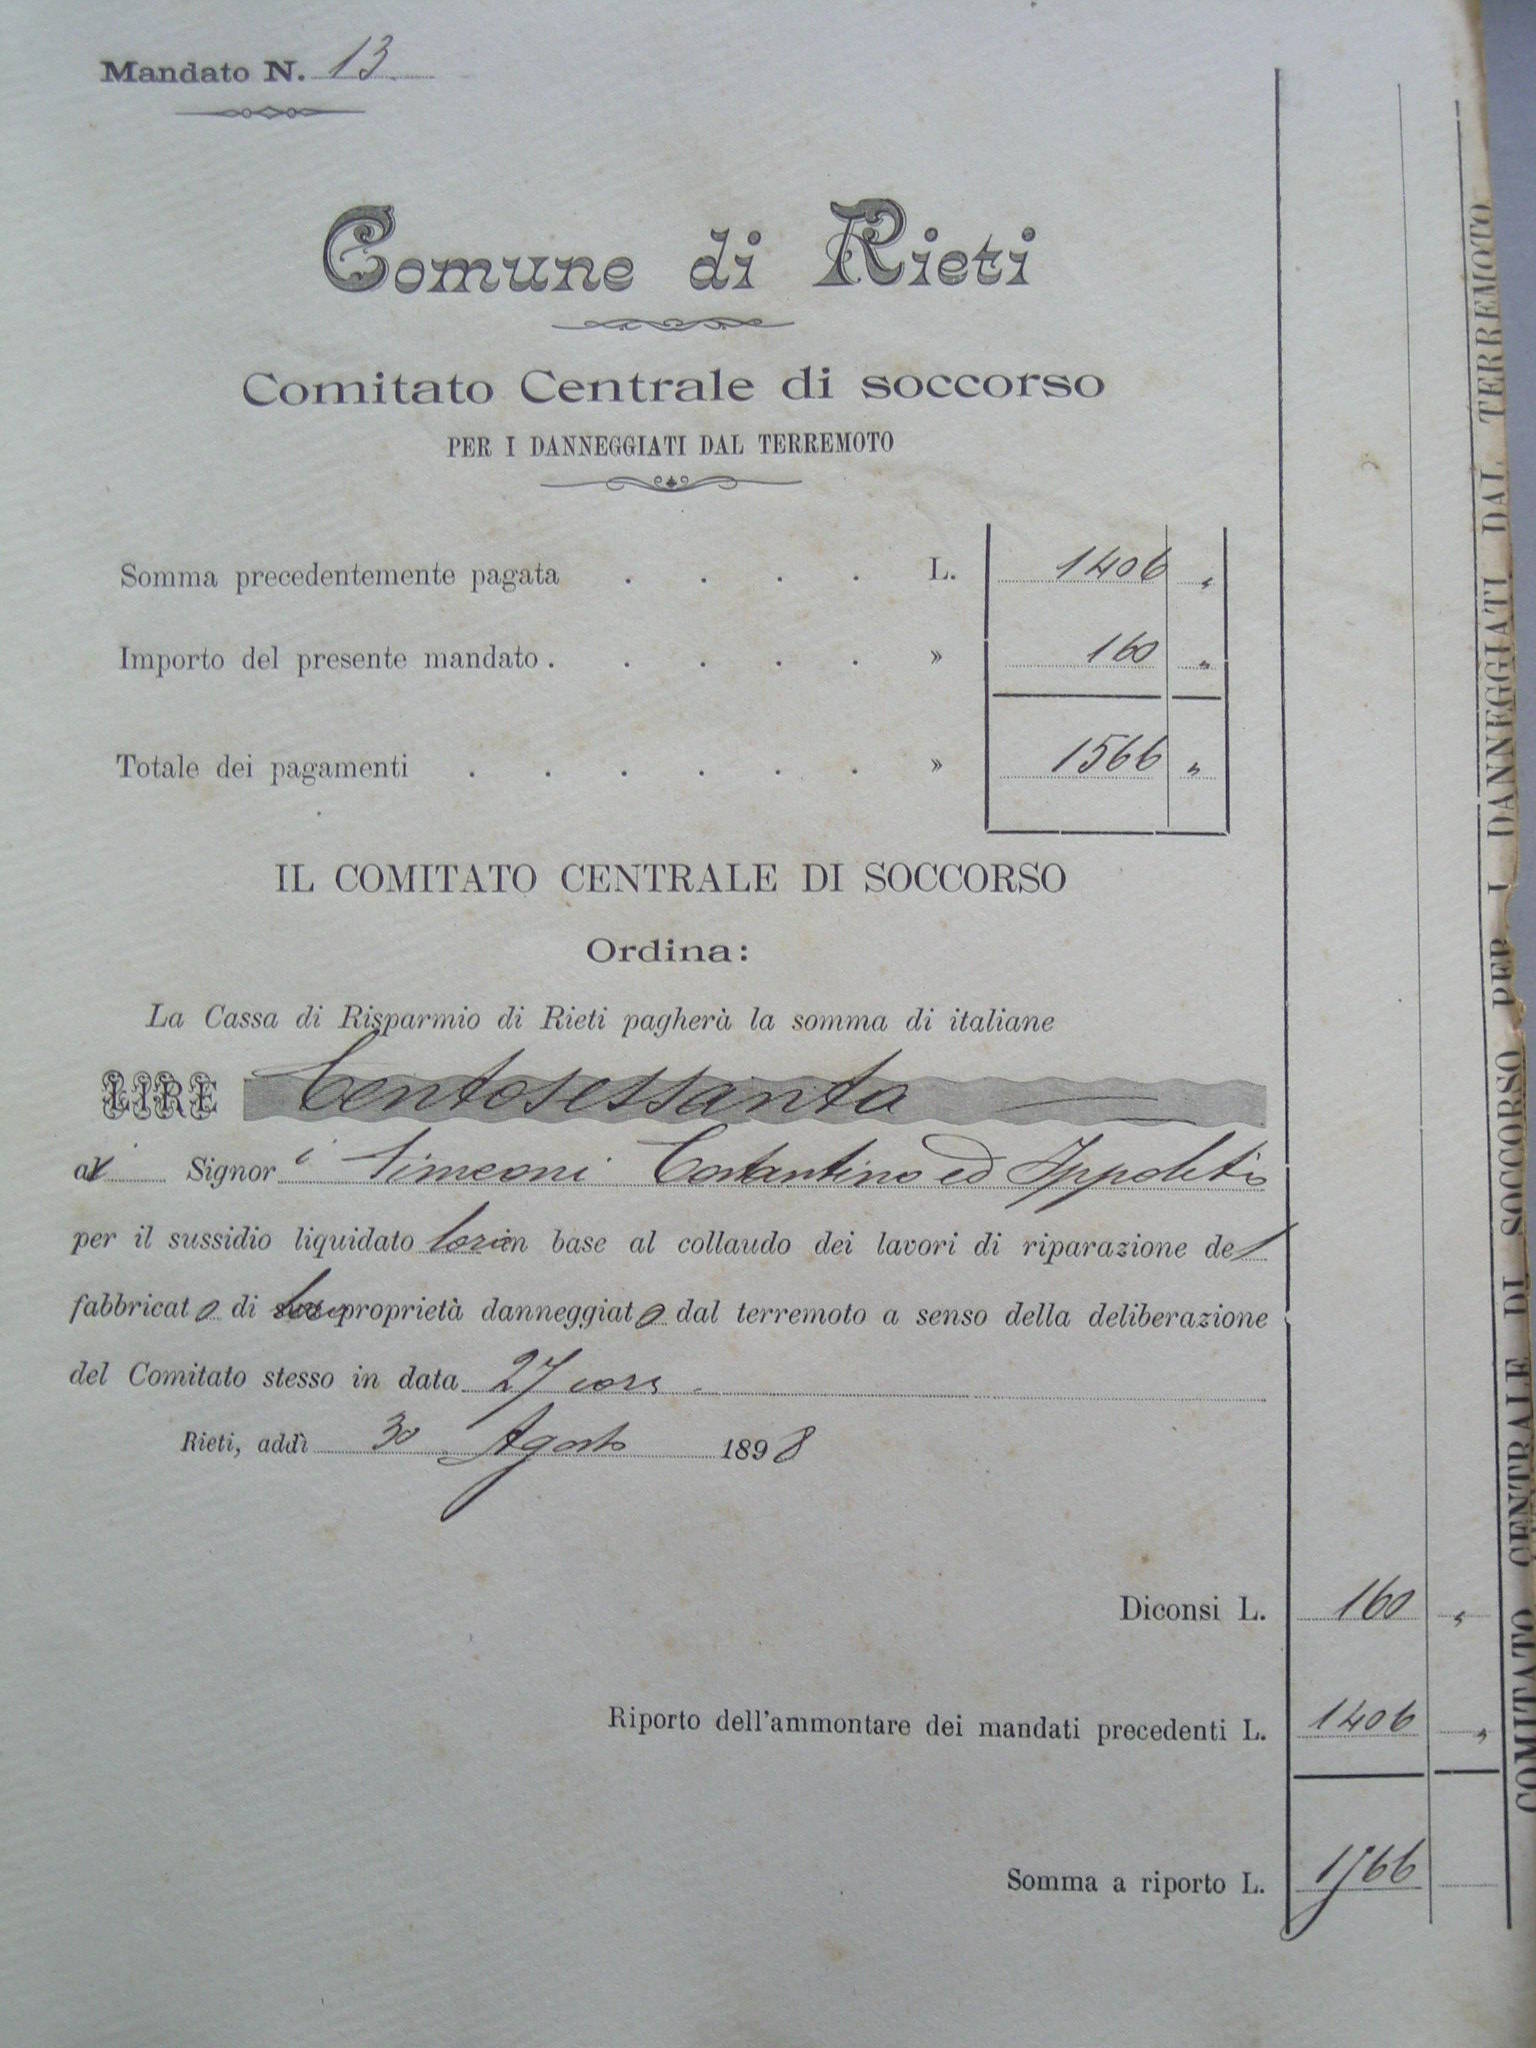 Mandato N. 13
Comune di Rieti
Comitato Centrale di soccorso
PER I DANNEGGIATI DAL TERREMOTO
Somma precedentemente pagata . . . . L. 1406 „
Importo del presente mandato . . . . . » 160 „
Totale dei pagamenti . . . . . . » 1566 „
IL COMITATO CENTRALE DI SOCCORSO
Ordina:
La Cassa di Risparmio di Rieti pagherà la somma di italiane
LIRE Centosessanta
ai Signori Simeoni Costantino ed Ippolito
per il sussidio liquidato loro in base al collaudo dei lavori di riparazione del
fabbricato di loro proprietà danneggiato dal terremoto a senso della deliberazione
del Comitato stesso in data 27 corr.
Rieti, addì 30 Agosto 1898
Diconsi L. 160 „
Riporto dell'ammontare dei mandati precedenti L. 1406 „
Somma a riporto L. 1566
COMITATO CENTRALE DI SOCCORSO PER I DANNEGGIATI DAL TERREMOTO